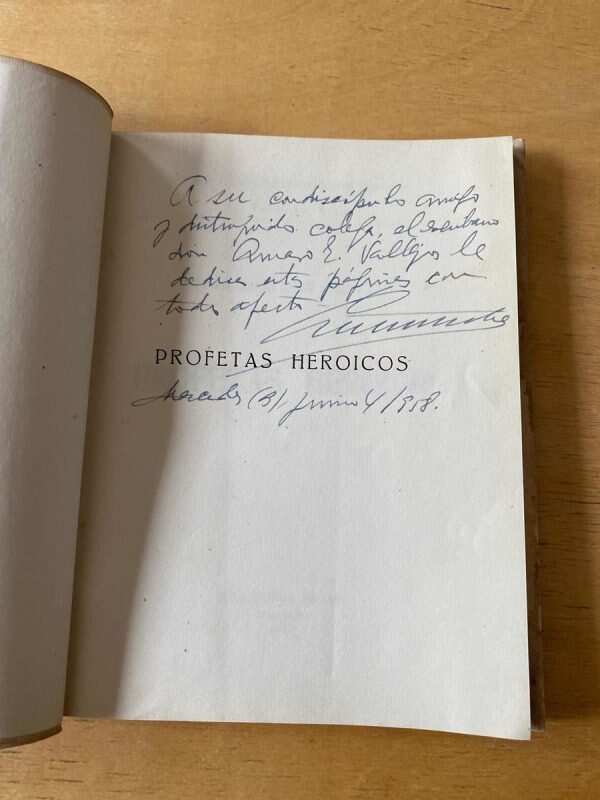 A su condiscípulo amigo
y distinguido colega, el escribano
don Amaro E. Vallejos le
dedica estas páginas con
todo afecto
PROFETAS HEROICOS
Mercedes (B) junio 4/958.